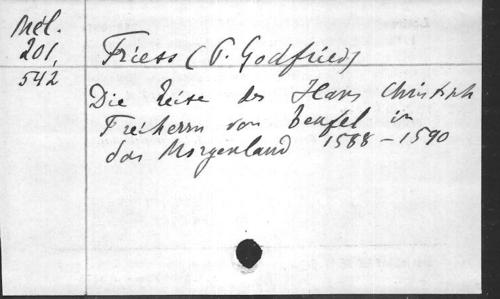 Mél.
201,
542
Friess (P. Godfried)
Die Reise des Hans Christoph
Freiherrn von Teufel in
das Morgenland 1588-1590